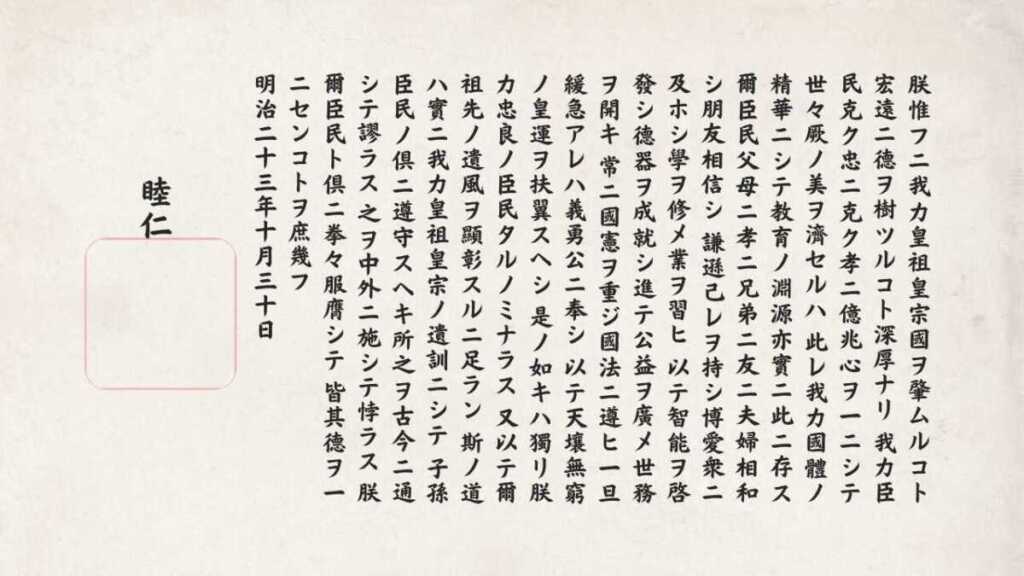 朕惟フニ我カ皇祖皇宗國ヲ肇ムルコト
宏遠ニ德ヲ樹ツルコト深厚ナリ 我カ臣
民克ク忠ニ克ク孝ニ億兆心ヲ一ニシテ
世々厥ノ美ヲ濟セルハ 此レ我カ國體ノ
精華ニシテ教育ノ淵源亦實ニ此ニ存ス
爾臣民父母ニ孝ニ兄弟ニ友ニ夫婦相和
シ朋友相信シ 謙遜己レヲ持シ博愛衆ニ
及ホシ學ヲ修メ業ヲ習ヒ 以テ智能ヲ啓
發シ德器ヲ成就シ進テ公益ヲ廣メ世務
ヲ開キ 常ニ國憲ヲ重ジ國法ニ遵ヒ 一旦
緩急アレハ義勇公ニ奉シ 以テ天壤無窮
ノ皇運ヲ扶翼スヘシ 是ノ如キハ獨リ朕
カ忠良ノ臣民タルノミナラス 又以テ爾
祖先ノ遺風ヲ顯彰スルニ足ラン 斯ノ道
ハ實ニ我カ皇祖皇宗ノ遺訓ニシテ 子孫
臣民ノ俱ニ遵守スヘキ所之ヲ古今ニ通
シテ謬ラス 之ヲ中外ニ施シテ悖ラス 朕
爾臣民ト俱ニ拳々服膺シテ 皆其德ヲ一
ニセンコトヲ庶幾フ
明治二十三年十月三十日
睦仁